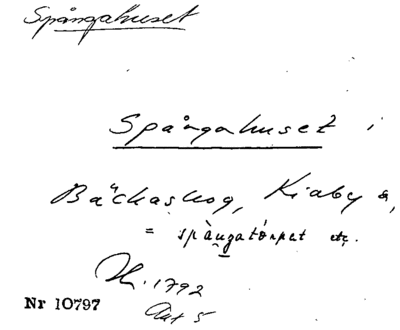 Spångahuset
Spångahuset i
Bäckaskog, Kiaby s,
= spàngatórpet etc.
1792
Nr 10797
Akt 5